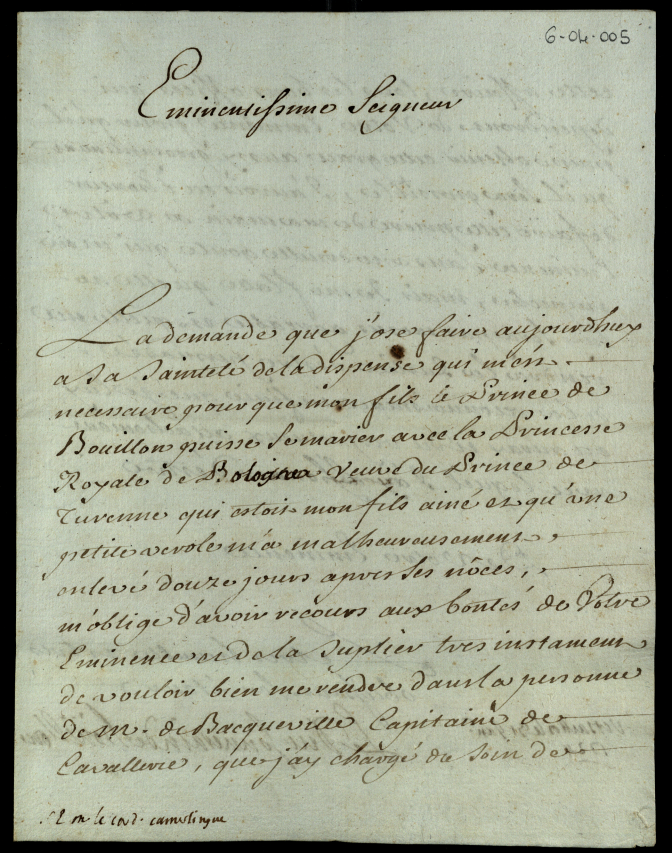 6-04-005
Eminentissime Seigneur
La demande que j'ose faire aujourdhuy
a Sa Sainteté de la dispense qui m'est
necessaire pour que mon fils le Prince de
Bouillon puisse se marier avec la Princesse
Royale de Bologne veuve du Prince de
Turenne qui estoit mon fils ainé et qu'une
petite verole m'a malheureusement
enlevé douze jours apres ses nôces,
m'oblige d'avoir recours aux bontés de Votre
Eminence et de la suplier tres instament
de vouloir bien me rendre dans la personne
de M. de Bacqueville Capitaine de
Cavallerie, que j'ay chargé du soin de
le card. camerlingue